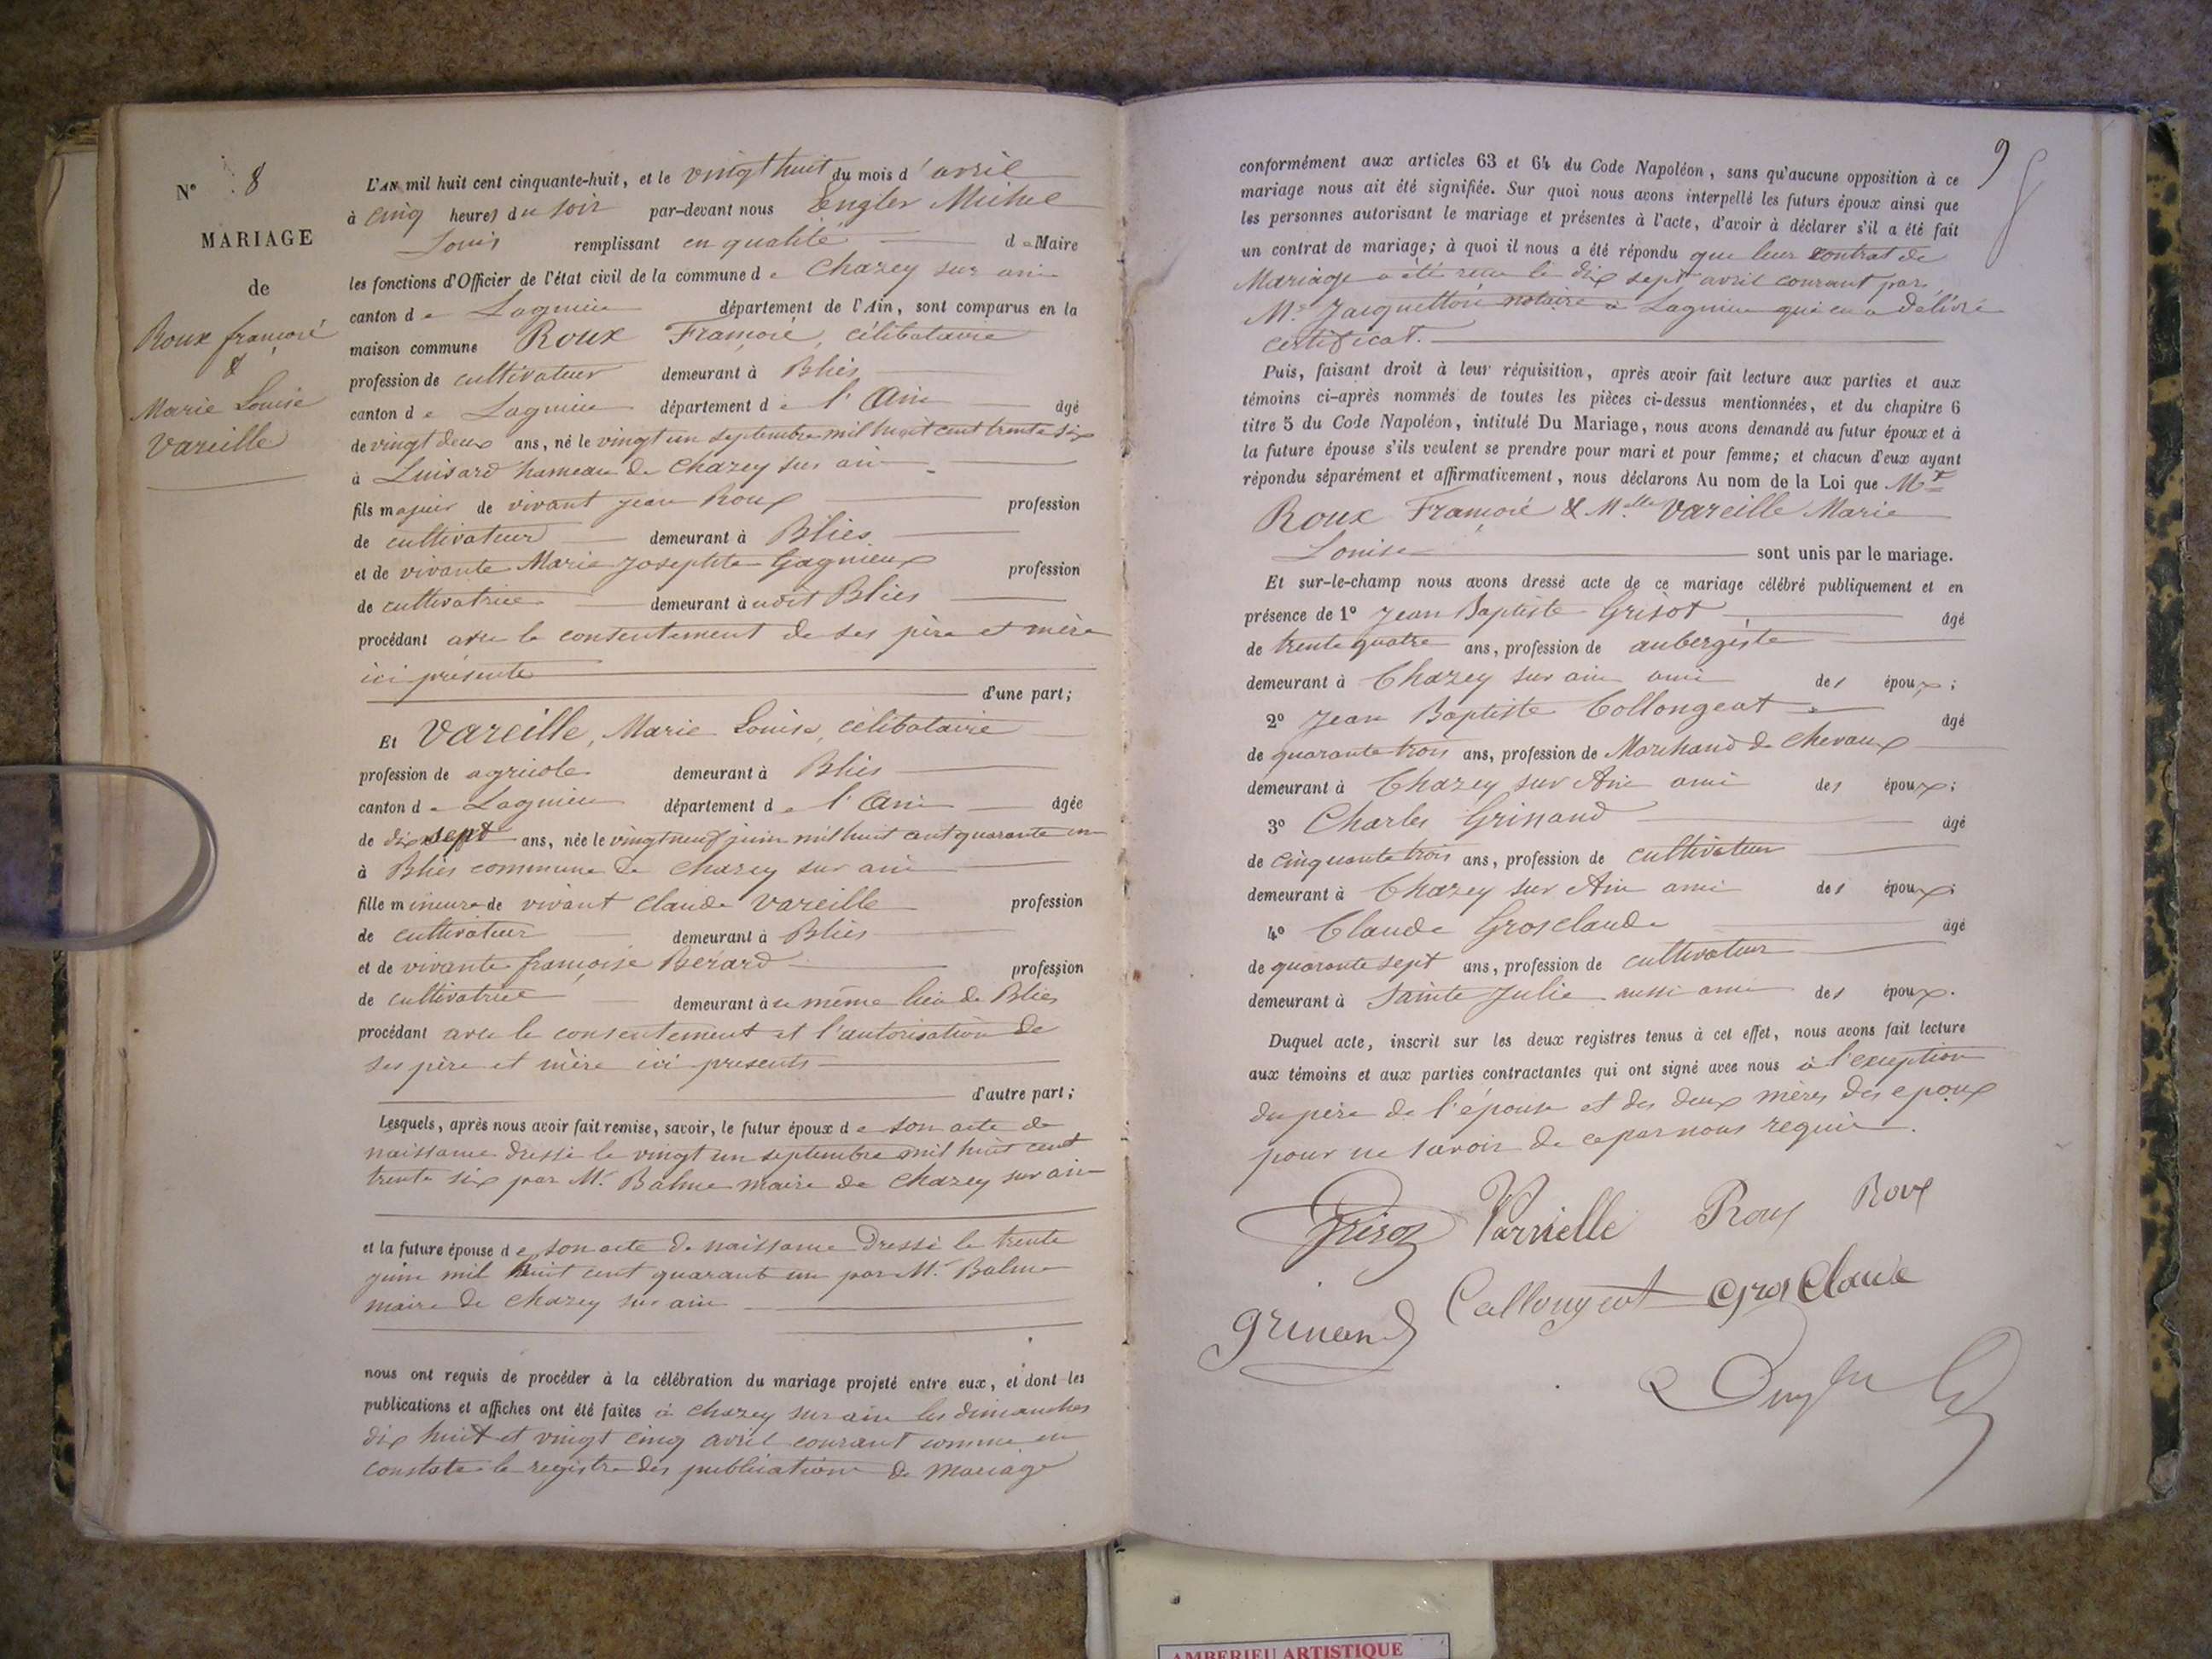 N° 8
MARIAGE
de
Roux françois
&
Marie Louise
Vareille
L'AN mil huit cent cinquante-huit, et le vingt huit du mois d'avril
à cinq heures du soir par-devant nous Engler Michel
Louis remplissant en qualité de Maire
les fonctions d'Officier de l'état civil de la commune de Chazey sur ain
canton de Lagnieu département de l'Ain, sont comparus en la
maison commune Roux François, célibataire
profession de cultivateur demeurant à Blies
canton de Lagnieu département de l'Ain âgé
de vingt deux ans, né le vingt un septembre mil huit cent trente six
à Luisard hameau de Chazey sur ain
fils majeur de vivant jean Roux profession
de cultivateur demeurant à Blies
et de vivante Marie Josephte Gagnieux profession
de cultivatrice demeurant à udit Blies
procédant avec le consentement de ses père et mère
ici présente
d'une part;
Et Vareille, Marie Louise, célibataire
profession de agricole demeurant à Blies
canton de Lagnieu département de l'Ain âgée
de dix sept ans, née le vingt neuf juin mil huit cent quarante un
à Blies commune de Chazey sur ain
fille mineure de vivant Claude Vareille profession
de cultivateur demeurant à Blies
et de vivante françoise Berard profession
de cultivatrice demeurant à ce même lieu de Blies
procédant avec le consentement et l'autorisation de
ses père et mère ici presents
d'autre part;
Lesquels, après nous avoir fait remise, savoir, le futur époux de son acte de
naissance dressé le vingt un septembre mil huit cent
trente six par Mr. Balme maire de Chazey sur ain
et la future épouse de son acte de naissance dressé le trente
juin mil huit cent quarante un par M. Balme
maire de Chazey sur ain
nous ont requis de procéder à la célébration du mariage projeté entre eux, et dont les
publications et affiches ont été faites à Chazey sur ain les dimanches
dix huit et vingt cinq avril courant comme en
constate le registre des publications de mariage
9
conformément aux articles 63 et 64 du Code Napoléon, sans qu'aucune opposition à ce
mariage nous ait été signifiée. Sur quoi nous avons interpellé les futurs époux ainsi que
les personnes autorisant le mariage et présentes à l'acte, d'avoir à déclarer s'il a été fait
un contrat de mariage; à quoi il nous a été répondu que leur contrat de
Mariage a été reçu le dix sept avril courant par
Me. Jacquetton notaire à Lagnieu qui en a délivré
certificat.
Puis, faisant droit à leur réquisition, après avoir fait lecture aux parties et aux
témoins ci-après nommés de toutes les pièces ci-dessus mentionnées, et du chapitre 6
titre 5 du Code Napoléon, intitulé Du Mariage, nous avons demandé au futur époux et à
la future épouse s'ils veulent se prendre pour mari et pour femme; et chacun d'eux ayant
répondu séparément et affirmativement, nous déclarons Au nom de la Loi que Mr
Roux François & Melle Vareille Marie
Louise sont unis par le mariage.
Et sur-le-champ nous avons dressé acte de ce mariage célébré publiquement et en
présence de 1° Jean Baptiste Grisot âgé
de trente quatre ans, profession de aubergiste
demeurant à Chazey sur ain ami des époux;
2° Jean Baptiste Collongeat âgé
de quarante trois ans, profession de Marchand de Chevaux
demeurant à Chazey sur Ain ami des époux;
3° Charles Grinand âgé
de cinquante trois ans, profession de cultivateur
demeurant à Chazey sur Ain ami des époux;
4° Claude Grosclaude âgé
de quarante sept ans, profession de cultivateur
demeurant à Sainte Julie aussi ami des époux.
Duquel acte, inscrit sur les deux registres tenus à cet effet, nous avons fait lecture
aux témoins et aux parties contractantes qui ont signé avec nous à l'exception
du père de l'épouse et des deux mères des epoux
pour ne savoir de ce par nous requis.
Grisot Varrielle Roux Roux
Grinand Collongeat Gros Claude
Engler
AMBERIEU ARTISTIQUE